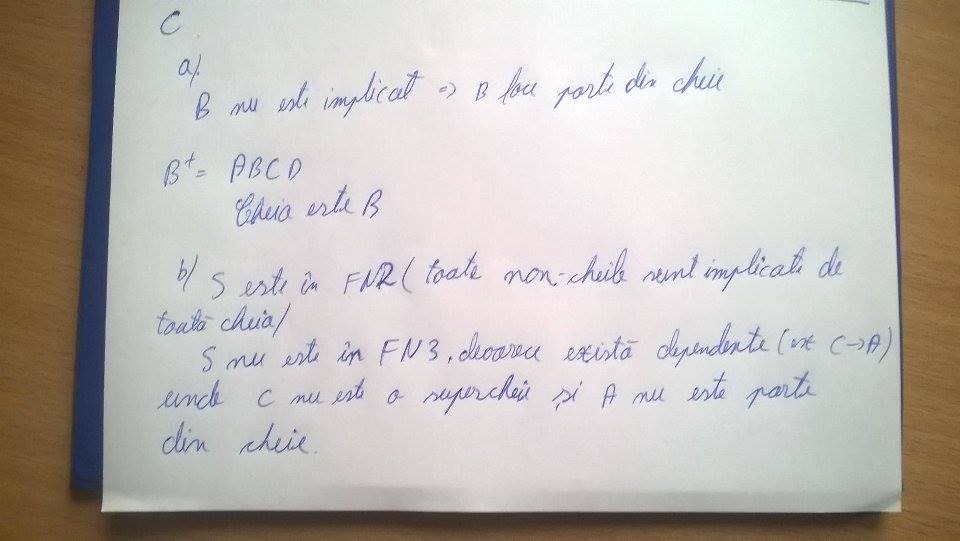 C
a).
B nu este implicat => B face parte din cheie
B⁺ = ABCD
Cheia este B
b) S este în FN2 (toate non-cheile sunt implicate de
toată cheia)
S nu este în FN3, deoarece există dependente (ex C->A)
unde C nu este o supercheie și A nu este parte
din cheie.